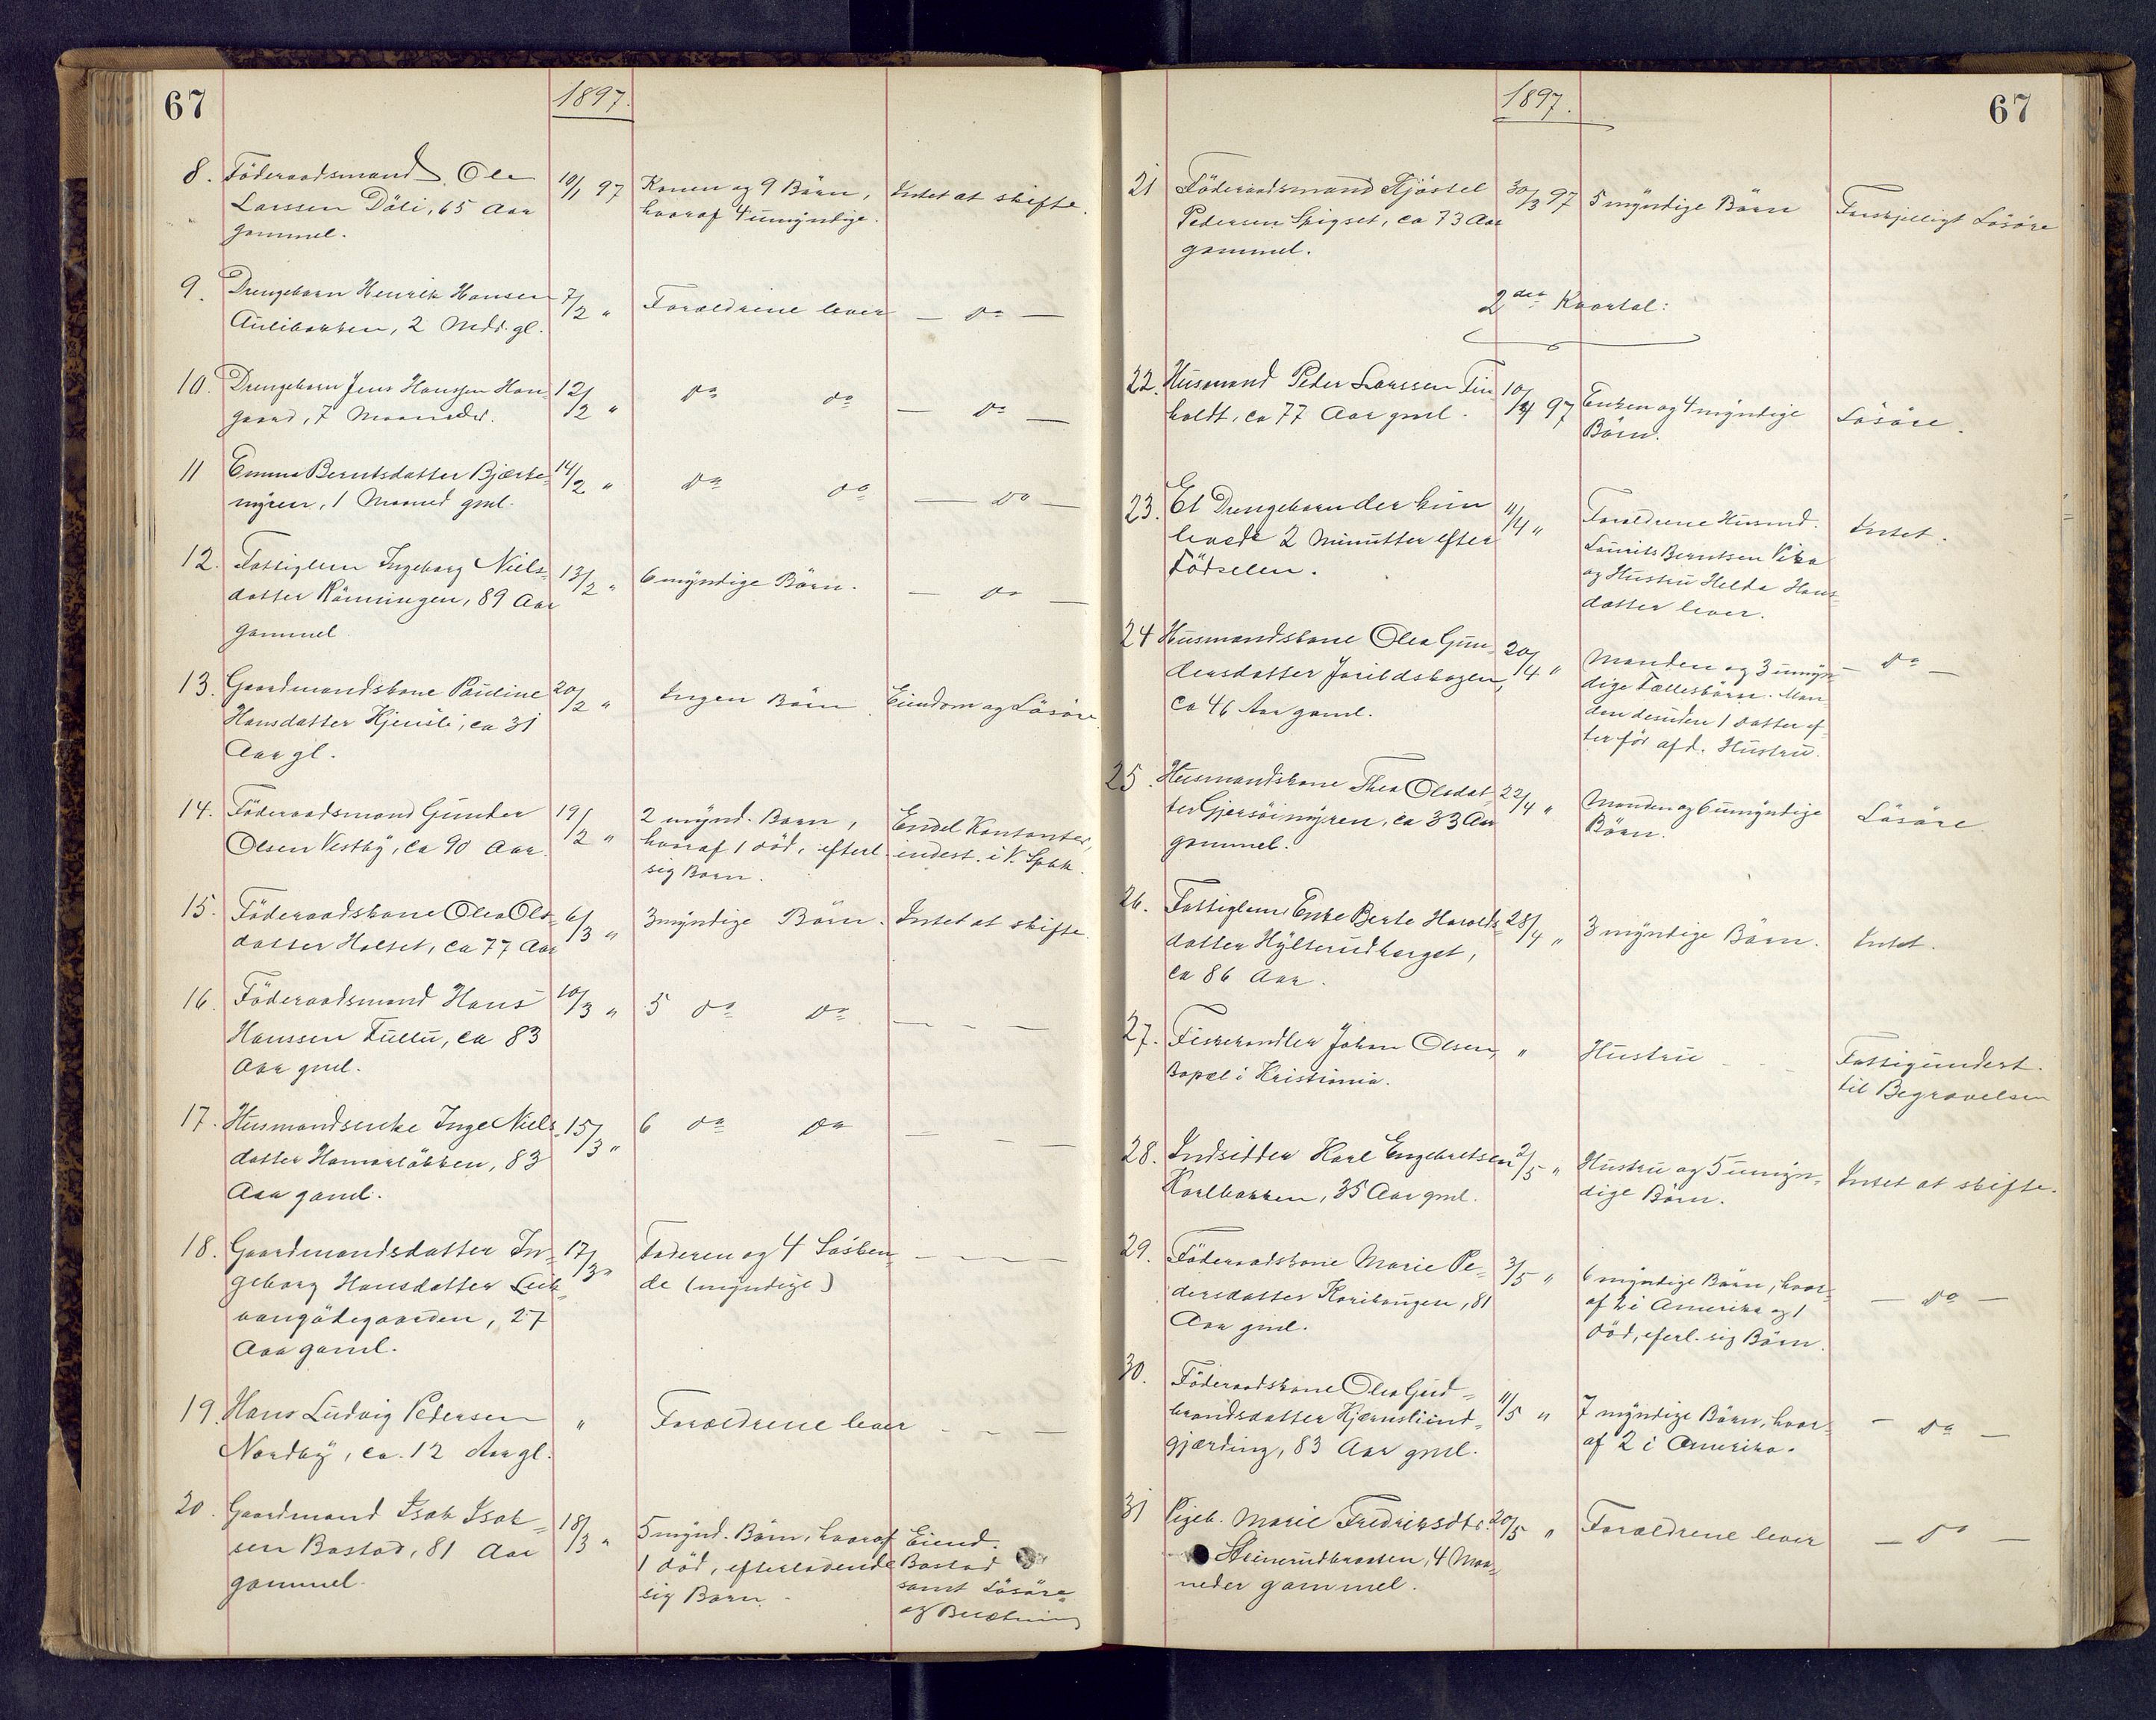 67
1897.
8. Föderaadsmand Ole 10/1 97 Konen og 9 Börn, Intet at skifte.
Larssen Döli, 65 Aar hvoraf 4 umyndige.
gammel.
9. Drengebarn Henrik Hansen 7/2 " Forældrene lever — do —
Aulibakken, 2 Mdr. gl.
10. Drengebarn Jens Hanssen Hau- 12/2 " do do — do —
gaard, 7 Maaneder.
11 Emma Berntsdatter Bjerke- 14/2 " do do — do —
myren, 1 Maaned gml.
12. Fattiglem Ingeborg Niels- 13/2 " 6 myndige Börn. — do —
datter Rönningen, 89 Aar
gammel
13. Gaardmandskone Pauline 20/2 " Ingen Börn. Eiendom og Lösöre
Hansdatter Kjensli, ca 31
Aar gl.
14. Föderaadsmand Gunder 19/2 " 2 mynd. Barn, Endel Kontanter,
Olsen Vestby, ca 90 Aar. hvoraf 1 död, efterl. indest. i V. Spbk.
sig Barn.
15. Föderaadskone Olea Ols- 6/3 " 3 myndige Börn. Intet at skifte.
datter Holset, ca 77 Aar
16. Föderaadsmand Hans 10/3 " 5 do do — — —
Hanssen Tullu, ca 83
Aar gml.
17. Husmandsenke Inge Niels- 15/3 " 6 do do — — —
datter Hamarlökken, 83
Aar gaml.
18. Gaardmandsdatter In- 17/3 " Faderen og 4 Sösken- — — —
geborg Hansdatter
27 de (myndige)
Aar gaml.
19. Hans Ludvig Pedersen " Forældrene lever — — —
Nordby, ca. 12 Aar gl.
20. Gaardmand Isak Isak- 18/3 " 5 mynd. Börn, hvoraf Eiend.
sen Bastad, 81 Aar 1 död, efterladende Bastad
gammel. sig Barn. samt Lösöre
og Besætning
1897.
67
21 Föderaadsmand Kjöstel 30/3 97 5 myndige Börn Forskjelligt Lösöre
Pedersen Spigset, ca 73 Aar
gammel.
2det Kvartal:
22. Husmand Peder Larssen Tin- 10/4 97 Enken og 4 myndige Lösöre.
holdt, ca 77 Aar gml. Börn.
23. Et Drengebarn der kun 11/4 " Forældrene Husmd. Intet.
levede 2 Minutter efter Laurits Berntsen Vika
Födselen. og Hustru Helda Hans-
datter lever.
24 Husmandskone Olea Gun- 20/4 " Manden og 3 umyn- — do —
dersdatter Jorildshagen, dige Fællesbörn. Man-
ca 46 Aar gaml. den desuden 1 datter ef-
ter för afd. Hustru.
25. Husmandskone Thea Olsdat- 22/4 " Manden og 6 umyndige Lösöre
ter Gjersöimyren, ca 33 Aar Börn.
gammel.
26. Fattiglem Enke Berte Harolds- 28/4 " 3 myndige Börn. Intet.
datter Hylterudberget,
ca 86 Aar.
27. Fiskehandler Johan Olsen, " Hustru Fattigunderst.
Bopæl i Kristiania. til Begravelsen
28. Indsidder Karl Engebretsen 2/5 " Hustru og 5 umyn- Intet at skifte.
Karlbakken, 35 Aar gml. dige Börn.
29. Föderaadskone Marie Pe- 3/5 " 6 myndige Börn, hvor- — do —
dersdatter Karihaugen, 81 af 2 i Amerika og 1
Aar gml. död, efterl. sig Börn.
30. Föderaadskone Olea Gud- 11/5 " 7 myndige Börn, hvor- — do —
brandsdatter af 2 i Amerika.
gjærding, 83 Aar gml.
31 Pigeb. Marie Fredriksdtr. 20/5 " Forældrene lever — do —
Steinerudbraaten, 4 Maa-
neder gammel.